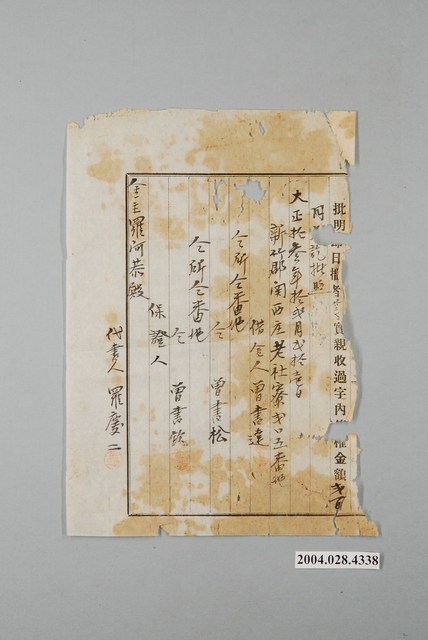 批明即日
實親收過字內
金額弍百
円
批照
大正拾叁年拾弍月弍拾壹日
新竹郡関西庄老社寮弍〇五番地
借仝人曾書達
仝所仝番地
仝 曾書松
仝所仝番地
仝 曾書欽
保證人
金主羅阿恭殿
代書人 羅慶二
2004.028.4338